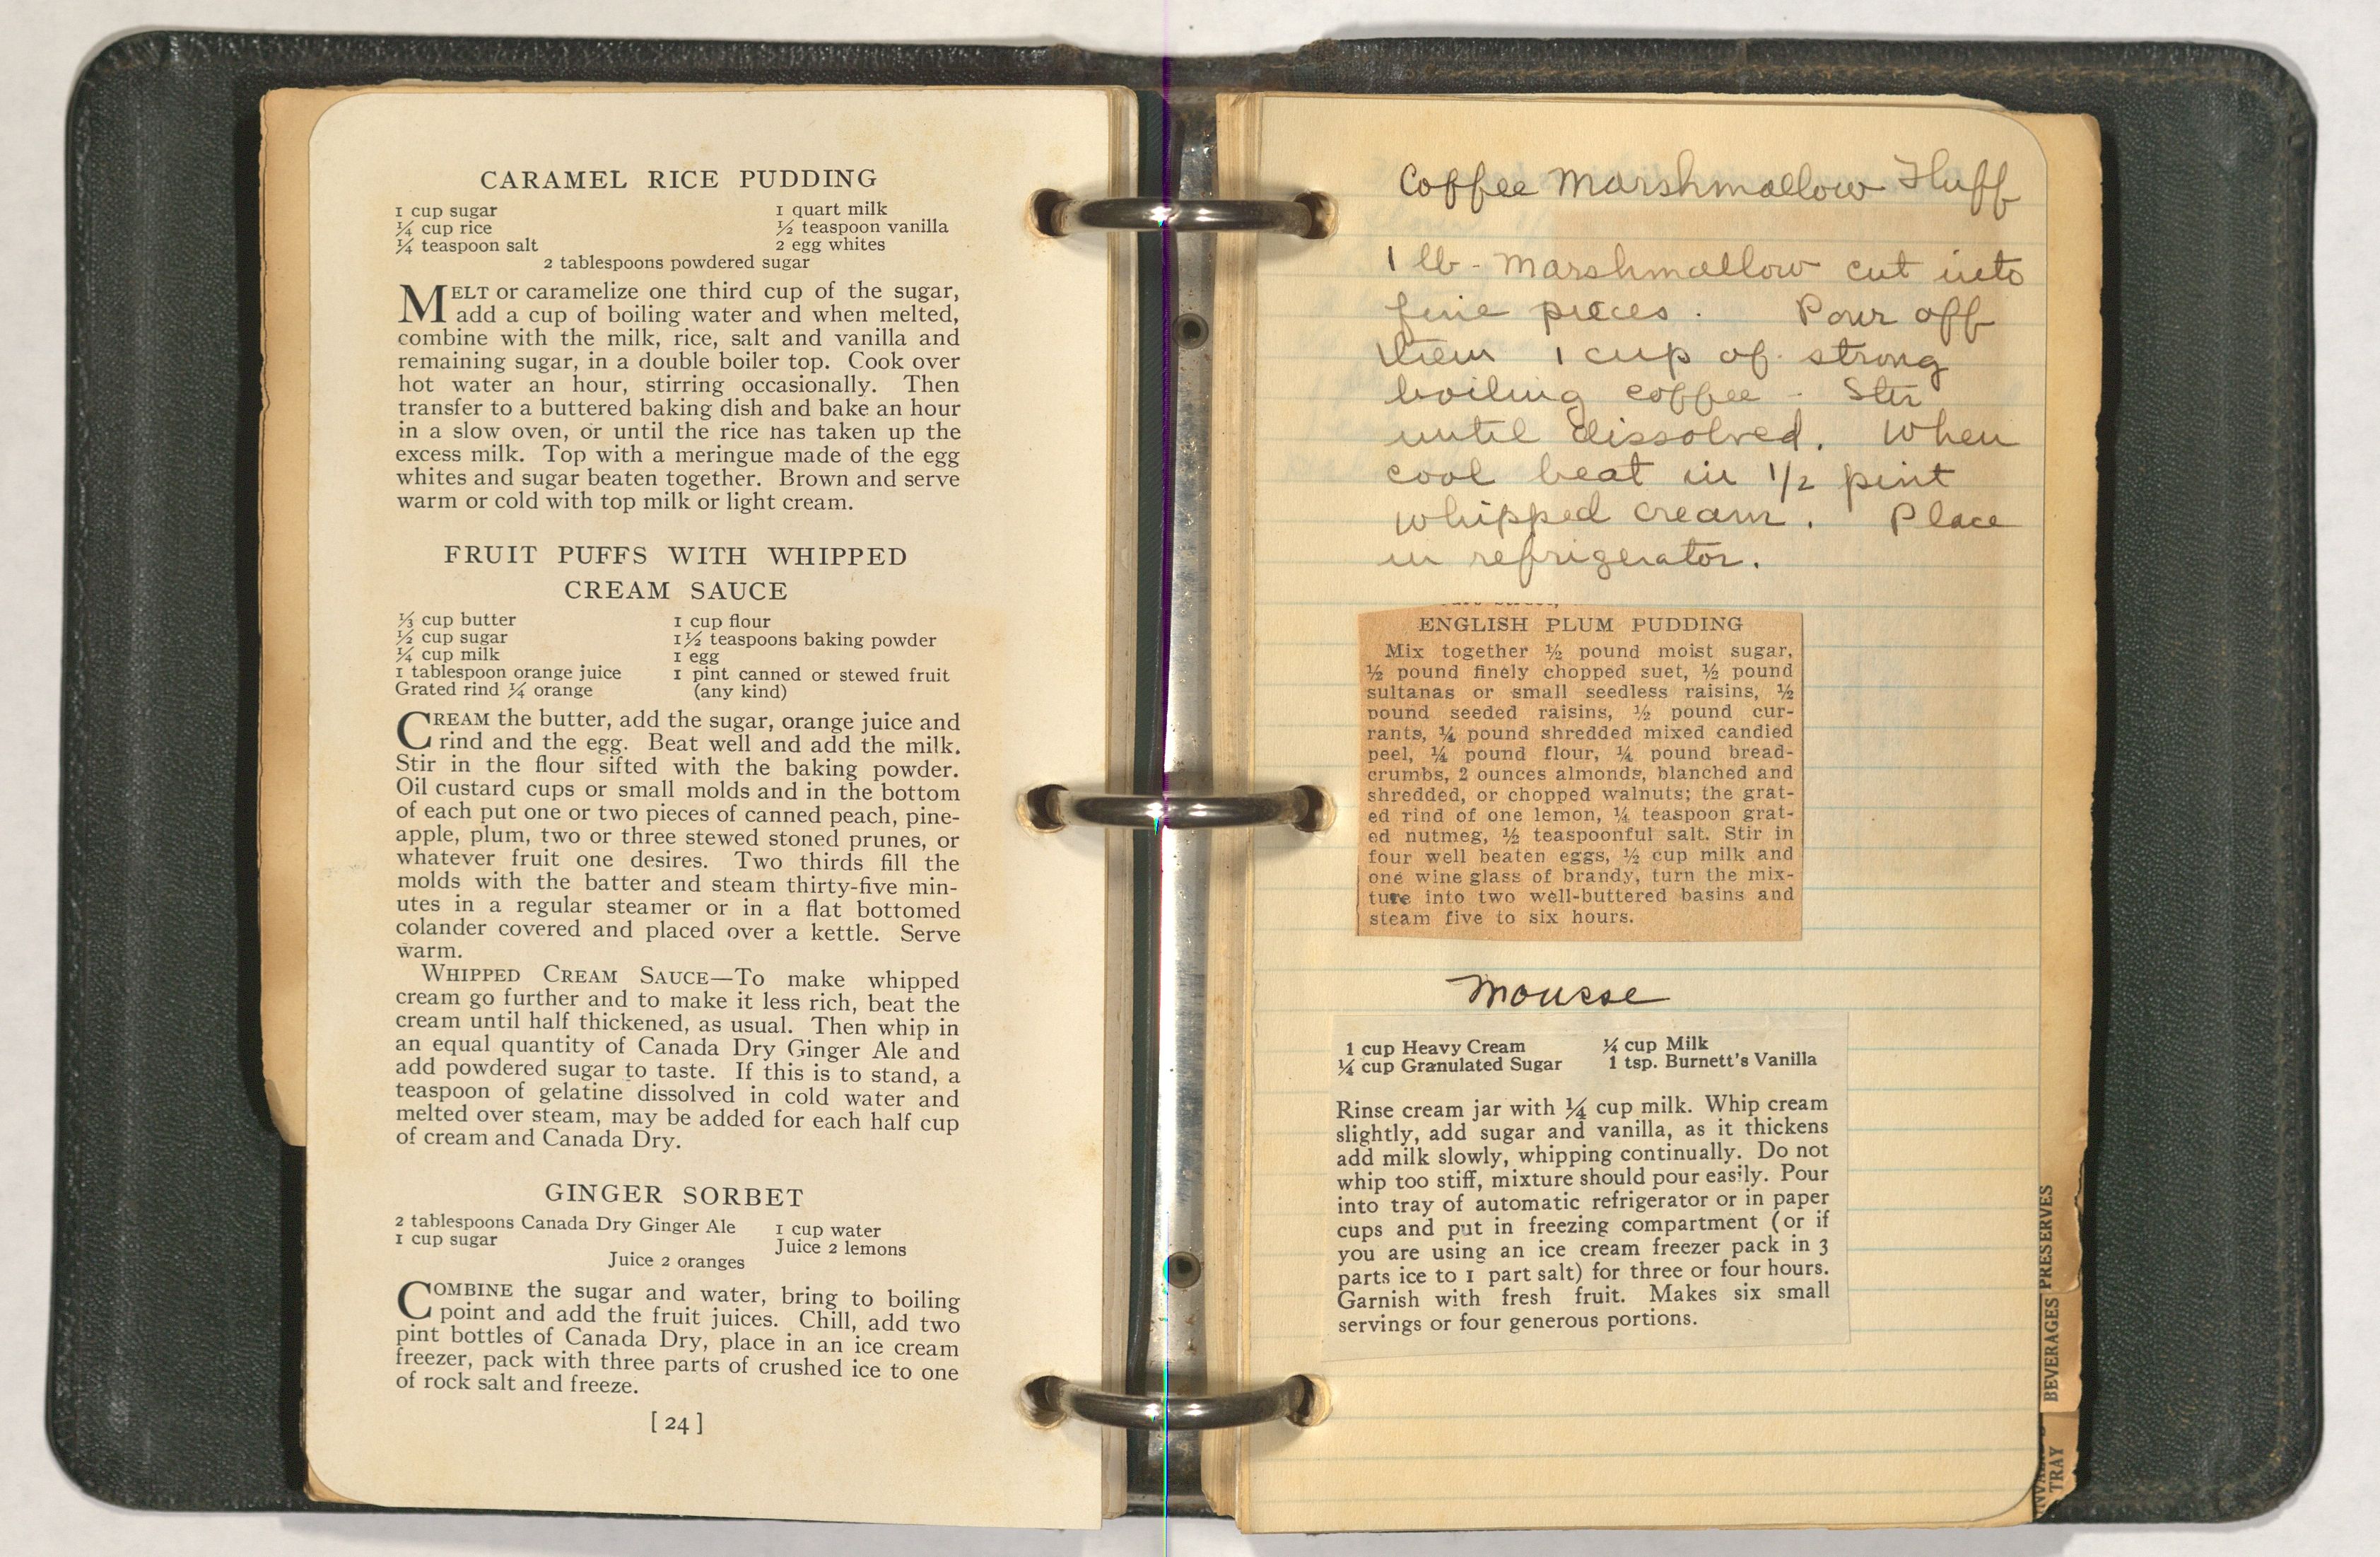 CARAMEL RICE PUDDING
1 cup sugar 1 quart milk
¼ cup rice ½ teaspoon vanilla
¼ teaspoon salt 2 egg whites
2 tablespoons powdered sugar
MELT or caramelize one third cup of the sugar,
add a cup of boiling water and when melted,
combine with the milk, rice, salt and vanilla and
remaining sugar, in a double boiler top. Cook over
hot water an hour, stirring occasionally. Then
transfer to a buttered baking dish and bake an hour
in a slow oven, or until the rice has taken up the
excess milk. Top with a meringue made of the egg
whites and sugar beaten together. Brown and serve
warm or cold with top milk or light cream.
FRUIT PUFFS WITH WHIPPED
CREAM SAUCE
⅓ cup butter 1 cup flour
½ cup sugar 1½ teaspoons baking powder
¼ cup milk 1 egg
1 tablespoon orange juice 1 pint canned or stewed fruit
Grated rind ¼ orange (any kind)
CREAM the butter, add the sugar, orange juice and
rind and the egg. Beat well and add the milk.
Stir in the flour sifted with the baking powder.
Oil custard cups or small molds and in the bottom
of each put one or two pieces of canned peach, pine-
apple, plum, two or three stewed stoned prunes, or
whatever fruit one desires. Two thirds fill the
molds with the batter and steam thirty-five min-
utes in a regular steamer or in a flat bottomed
colander covered and placed over a kettle. Serve
warm.
WHIPPED CREAM SAUCE—To make whipped
cream go further and to make it less rich, beat the
cream until half thickened, as usual. Then whip in
an equal quantity of Canada Dry Ginger Ale and
add powdered sugar to taste. If this is to stand, a
teaspoon of gelatine dissolved in cold water and
melted over steam, may be added for each half cup
of cream and Canada Dry.
GINGER SORBET
2 tablespoons Canada Dry Ginger Ale 1 cup water
1 cup sugar Juice 2 lemons
Juice 2 oranges
COMBINE the sugar and water, bring to boiling
point and add the fruit juices. Chill, add two
pint bottles of Canada Dry, place in an ice cream
freezer, pack with three parts of crushed ice to one
of rock salt and freeze.
[ 24 ]
Coffee Marshmallow Fluff
1 lb - Marshmallow cut into
fine pieces. Pour off
them 1 cup of strong
boiling coffee - Stir
until dissolved. When
cool beat in 1/2 pint
whipped cream. Place
in refrigerator.
ENGLISH PLUM PUDDING
Mix together ½ pound moist sugar,
½ pound finely chopped suet, ½ pound
sultanas or small seedless raisins, ½
pound seeded raisins, ½ pound cur-
rants, ¼ pound shredded mixed candied
peel, ¼ pound flour, ¼ pound bread-
crumbs, 2 ounces almonds, blanched and
shredded, or chopped walnuts; the grat-
ed rind of one lemon, ¼ teaspoon grat-
ed nutmeg, ½ teaspoonful salt. Stir in
four well beaten eggs, ½ cup milk and
one wine glass of brandy, turn the mix-
ture into two well-buttered basins and
steam five to six hours.
Mousse
1 cup Heavy Cream ¼ cup Milk
¼ cup Granulated Sugar 1 tsp. Burnett's Vanilla
Rinse cream jar with ¼ cup milk. Whip cream
slightly, add sugar and vanilla, as it thickens
add milk slowly, whipping continually. Do not
whip too stiff, mixture should pour easily. Pour
into tray of automatic refrigerator or in paper
cups and put in freezing compartment (or if
you are using an ice cream freezer pack in 3
parts ice to 1 part salt) for three or four hours.
Garnish with fresh fruit. Makes six small
servings or four generous portions.
PRESERVES
BEVERAGES
TRAY